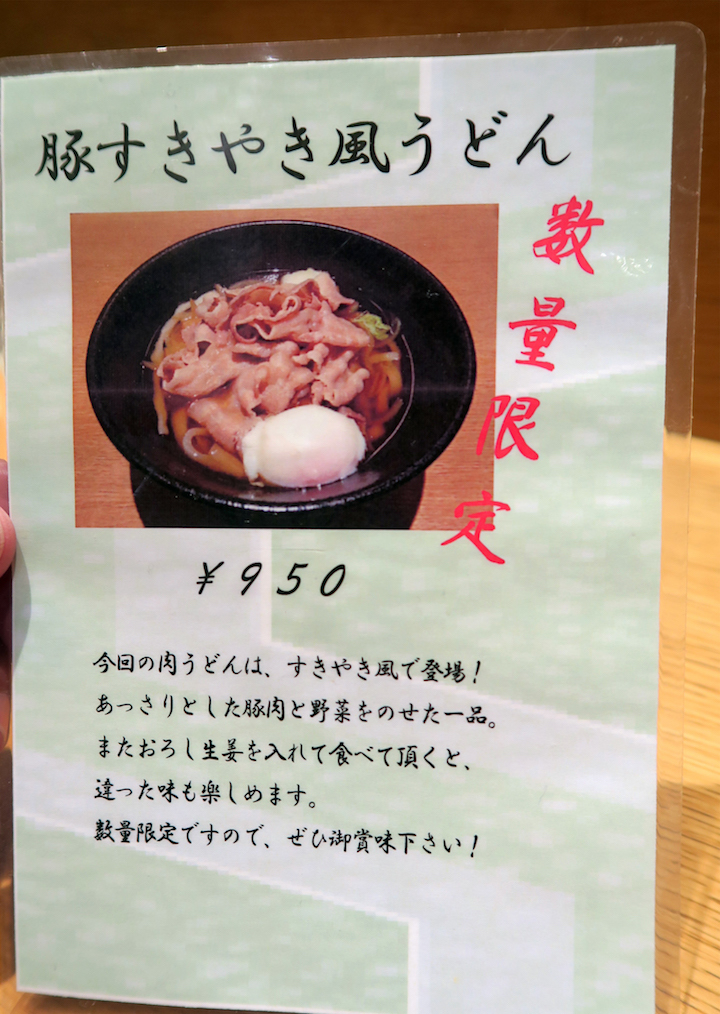 豚すきやき風うどん
数量限定
¥950
今回の肉うどんは、すきやき風で登場！
あっさりとした豚肉と野菜をのせた一品。
またおろし生姜を入れて食べて頂くと、
違った味も楽しめます。
数量限定ですので、ぜひ御賞味下さい！